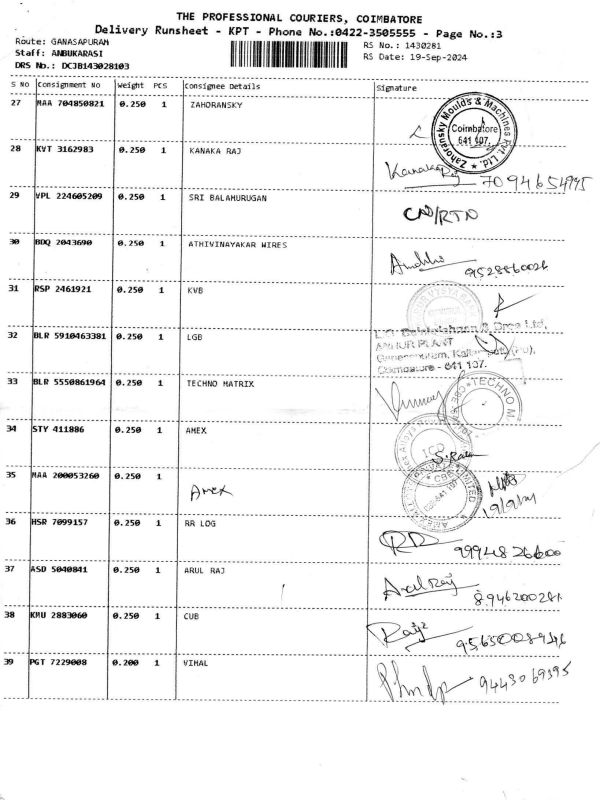 THE PROFESSIONAL COURIERS, COIMBATORE
Delivery Runsheet - KPT - Phone No.:0422-3505555 - Page No.:3
Route: GANASAPURAM
Staff: ANBUKARASI
DRS No.: DCJB143028103
RS No.: 1430281
RS Date: 19-Sep-2024
S No Consignment No Weight PCS Consignee Details Signature
27 MAA 704850821 0.250 1 ZAHORANSKY
Zahoransky Moulds & Machines Pvt. Ltd.
Coimbatore
641 107.
28 KVT 3162983 0.250 1 KANAKA RAJ
Kanaka Raj 7094654995
29 VPL 224605209 0.250 1 SRI BALAMURUGAN
CND/RTN
30 BDQ 2043690 0.250 1 ATHIVINAYAKAR WIRES
9528860026
31 RSP 2461921 0.250 1 KVB
32 BLR 5910463381 0.250 1 LGB
L.G. Balakrishnan & Bros Ltd,
ANNUR PLANT
Coimbatore - 641 107.
33 BLR 5550861964 0.250 1 TECHNO MATRIX
TECHNO M
34 STY 411886 0.250 1 AMEX
35 MAA 200053260 0.250 1
Amex
19/9/24
36 HSR 7099157 0.250 1 RR LOG
RD 9994826600
37 ASD 5040841 0.250 1 ARUL RAJ
Arul Raj 8946200281
38 KMU 2883060 0.250 1 CUB
39 PGT 7229008 0.200 1 VIMAL
9443069395